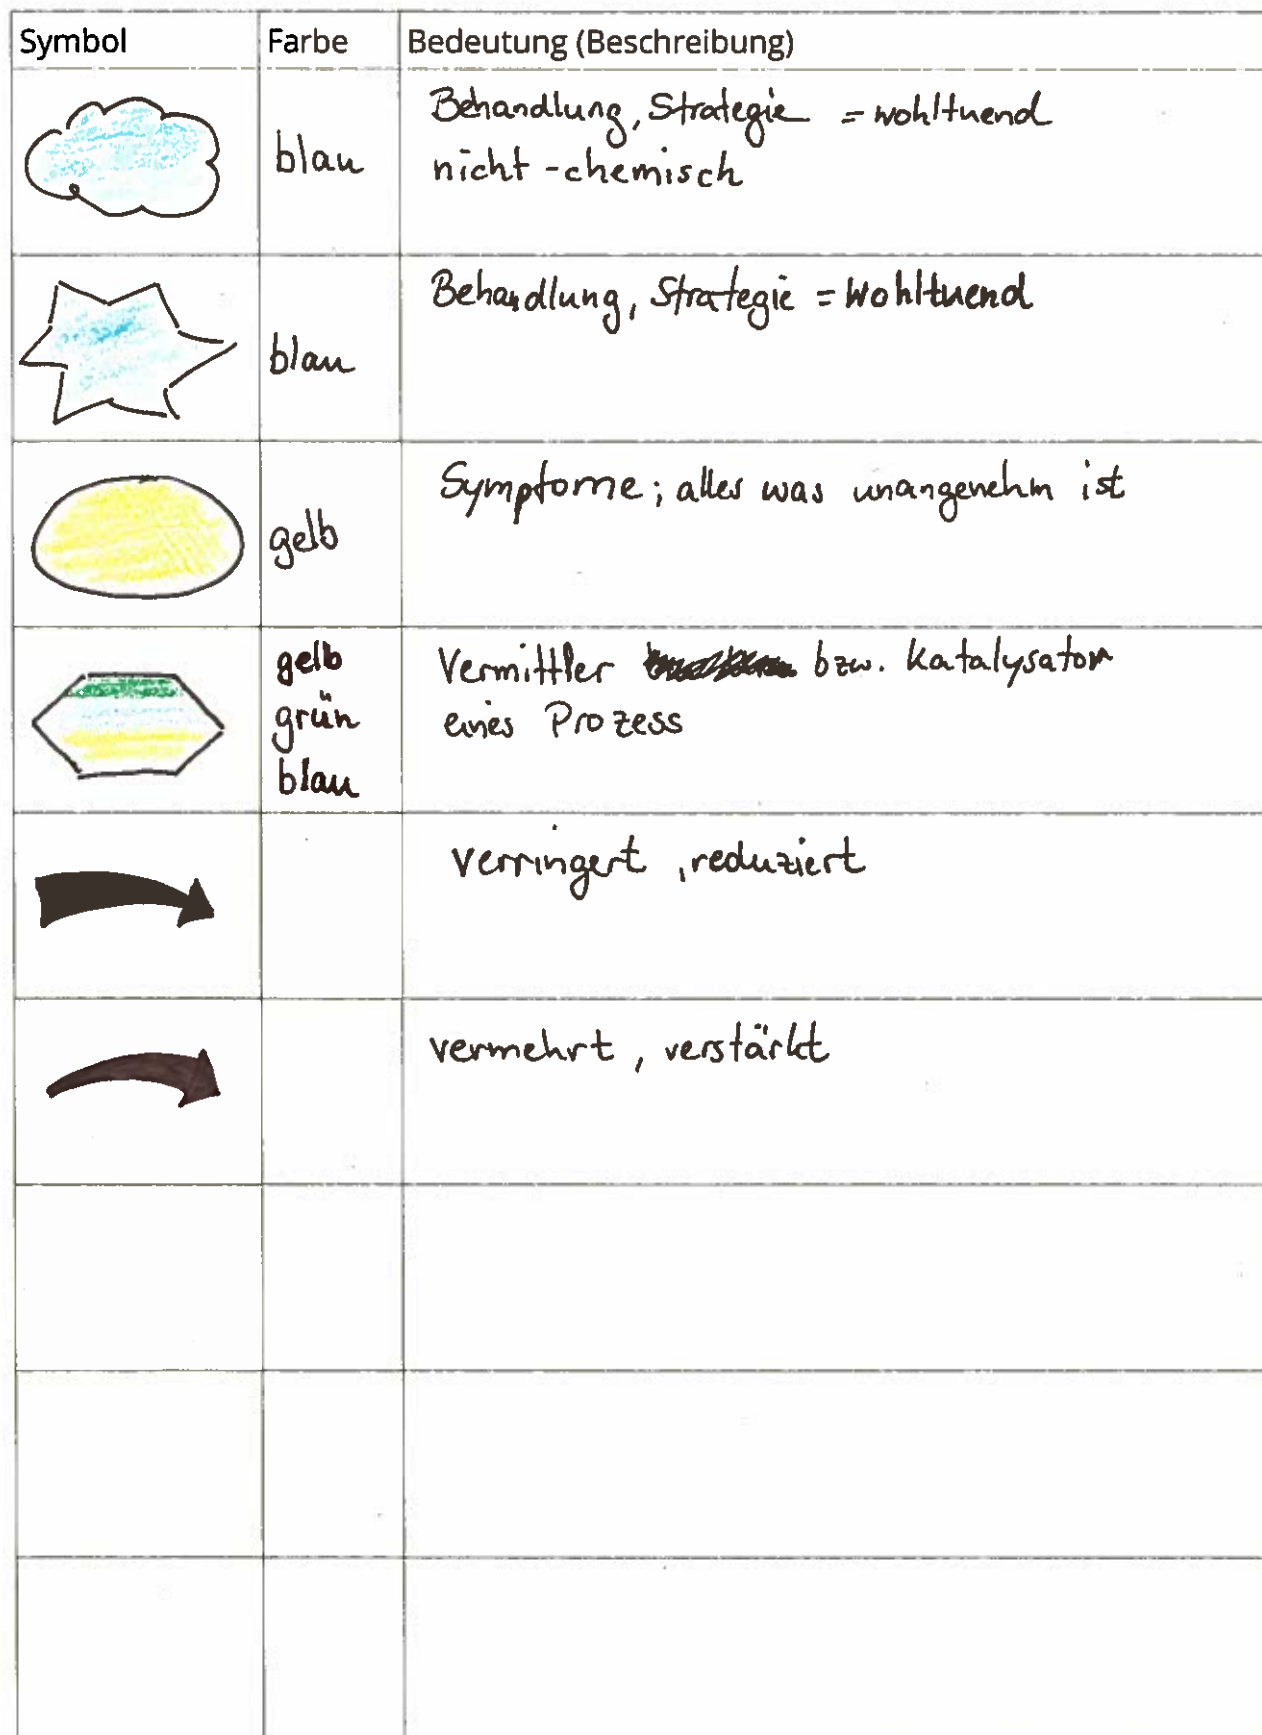 Symbol Farbe Bedeutung (Beschreibung)
blau
Behandlung, Strategie = wohltuend
nicht-chemisch
blau
Behandlung, Strategie = wohltuend
gelb
Symptome; alles was unangenehm ist
gelb
grün
blau
Vermittler bzw. Katalysator
eines Prozess
verringert, reduziert
vermehrt, verstärkt